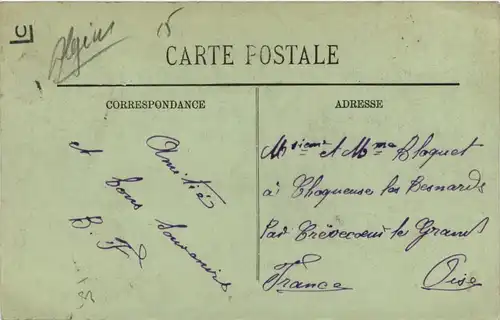 C
Algérie
15
CARTE POSTALE
CORRESPONDANCE
ADRESSE
Amitiés
et bons souvenirs
B. F
Msieur et Mme Cloquet
à Choqueuse les Besnards
Par Crèvecoeur le Grand
France Oise
32